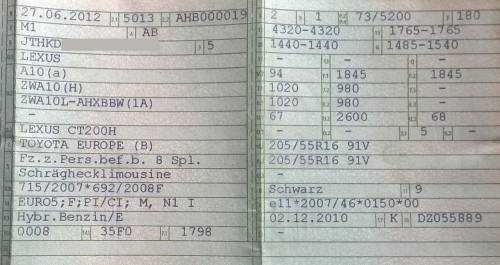 27.06.2012 5013 AHB000019
M1 AB
JTHKD 5
LEXUS
A10(a)
ZWA10(H)
ZWA10L-AHXBBW(1A)
-
LEXUS CT200H
TOYOTA EUROPE (B)
Fz.z.Pers.bef.b. 8 Spl.
Schräghecklimousine
715/2007*692/2008F
EURO5;F;PI/CI; M, N1 I
Hybr.Benzin/E
0008 35F0 1798
2 1 73/5200 180
4320-4320 1765-1765
1440-1440 1485-1540
- - -
94 1845 1845
1020 980 -
1020 980 -
67 2600 68
- - 5 -
205/55R16 91V
205/55R16 91V
-
Schwarz 9
e11*2007/46*0150*00
02.12.2010 K DZ055889
-